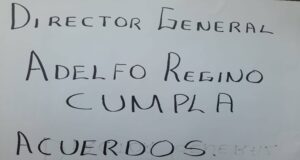 DIRECTOR GENERAL
ADELFO REGINO
CUMPLA
ACUERDOS.